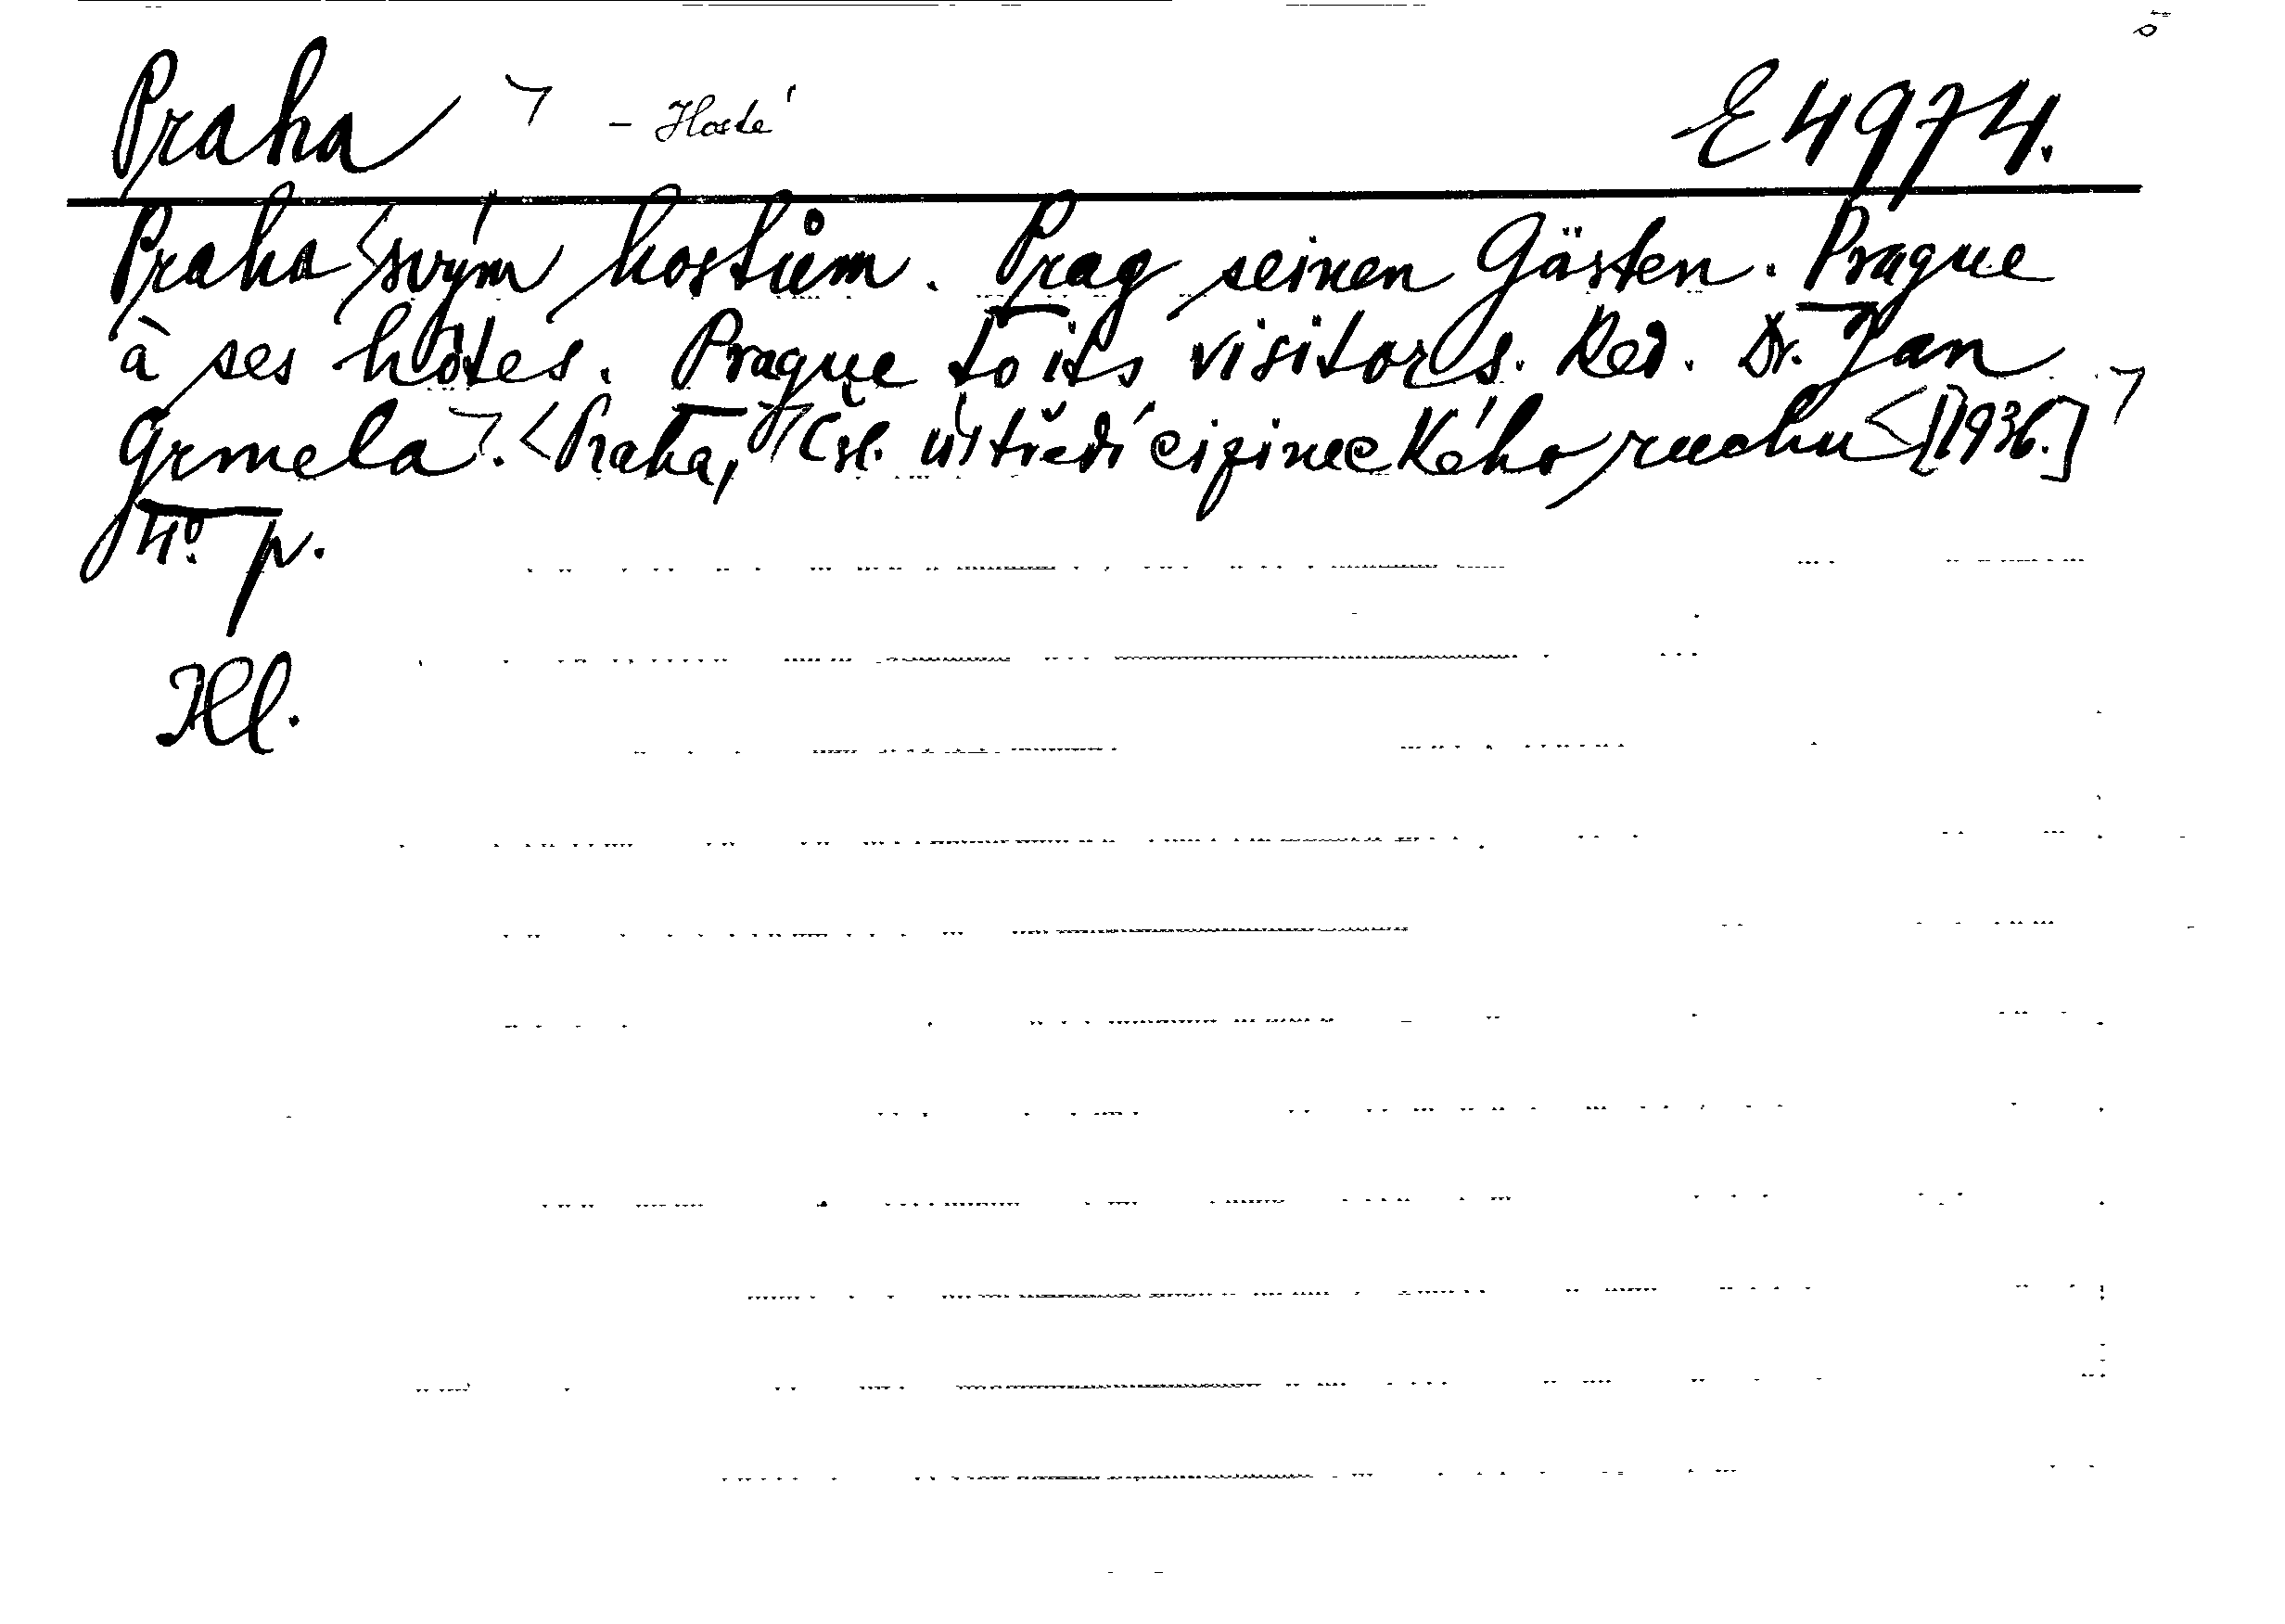 Praha ¬ - Hosté E 4974.
Praha <svým hostům. Prag seinen Gästen. Prague
à ses hôtes. Prague to its visitors. Red. Dr. Jan
Grmela ¬. <Praha, ¬ Čsl. ústředí cizineckého ruchu <[1936.] ¬
4° p.